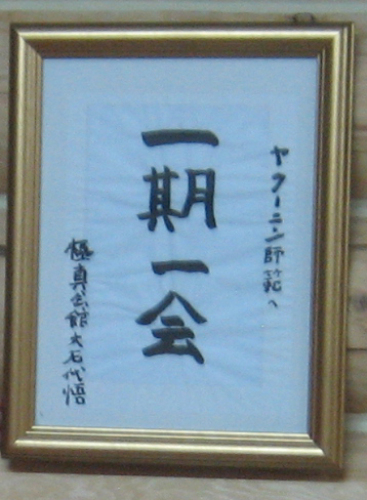 ヤクーニン師範へ
一期一会
極真会館大石代悟